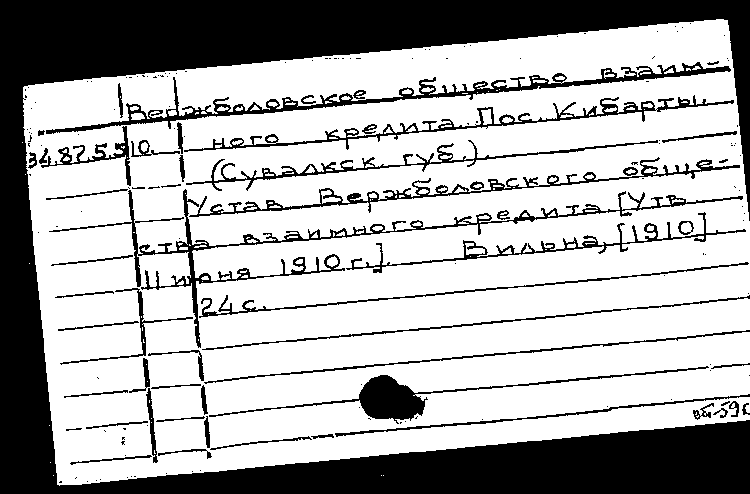 Вержболовское общество взаим-
34.87.5.510. ного кредита. Пос. Кибарты.
(Сувалкск. губ.).
Устав Вержболовского обще-
ства взаимного кредита. [Утв
11 июня 1910 г.]. Вильна, [1910].
24 с.